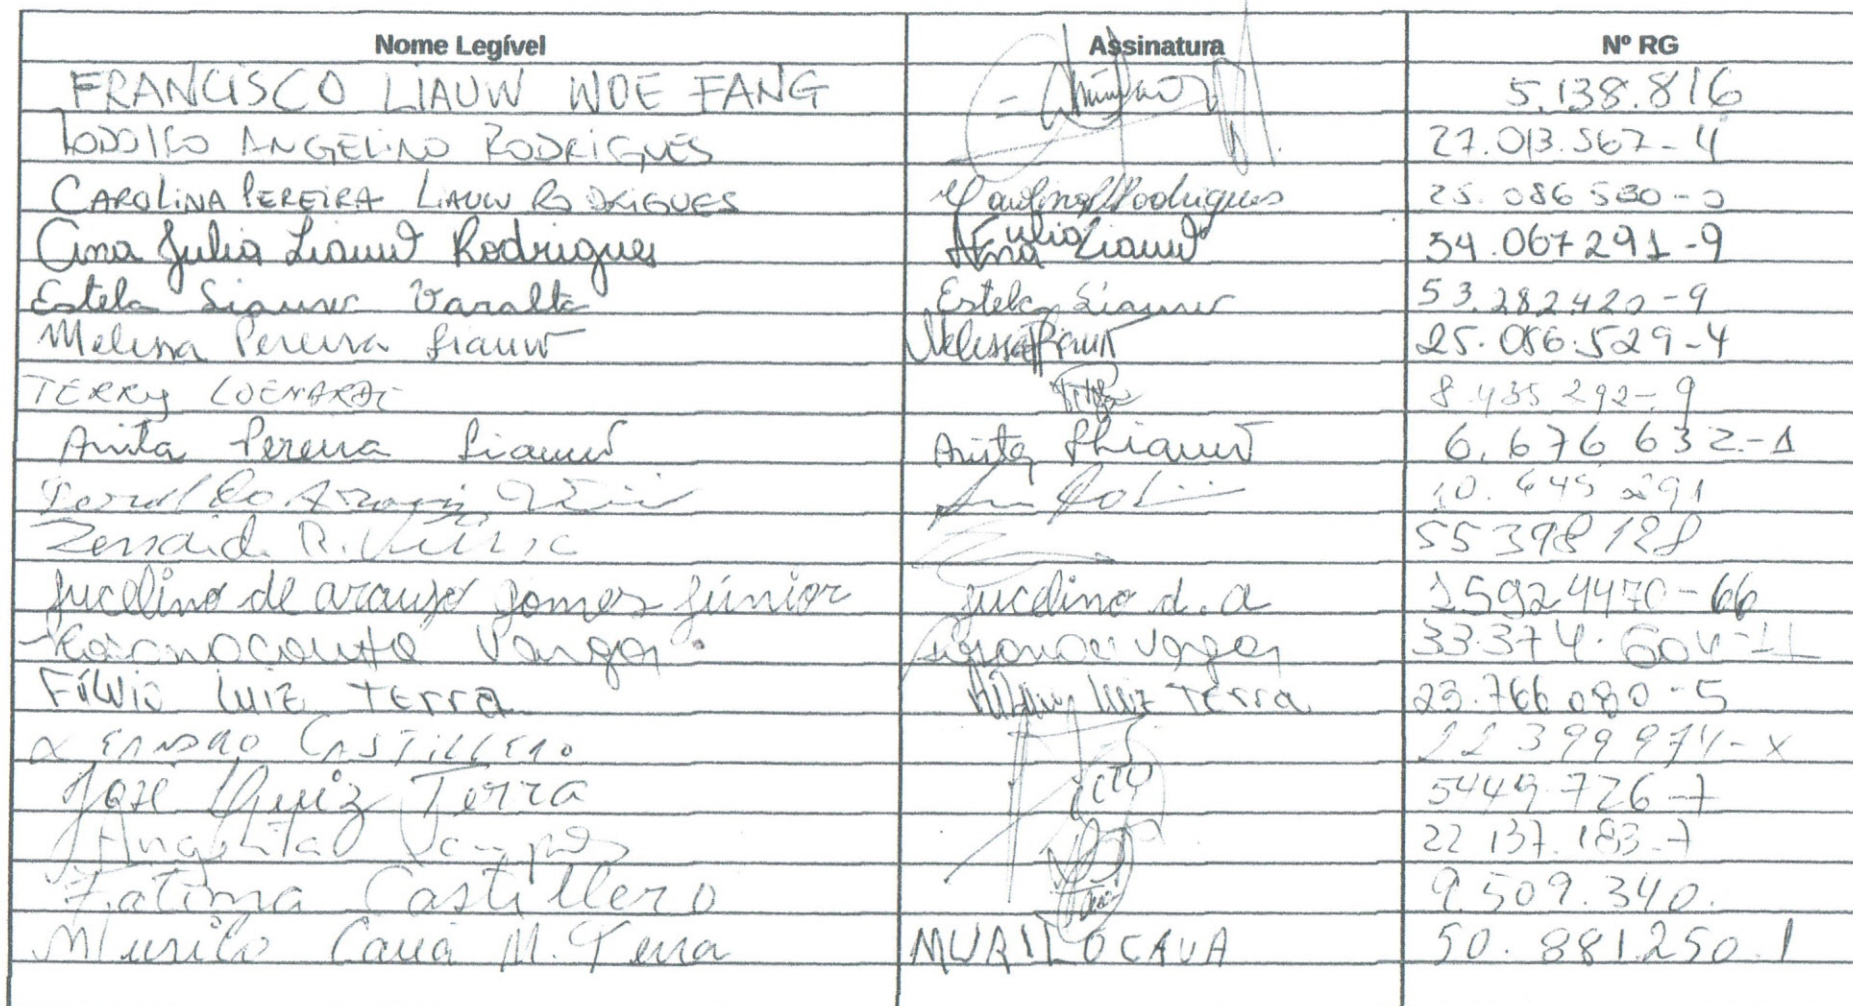 Nome Legível Assinatura Nº RG
FRANCISCO LIAUW WOE FANG 5.138.816
RODOLFO ANGELINO RODRIGUES 27.013.567-4
CAROLINA PEREIRA LIAUW RODRIGUES Carolina Rodrigues 25.086 530-0
Ana Julia Liauw Rodrigues Ana Julia Liauw 54.067291-9
Estela Liauw Varalta Estela Liauw 53.282420-9
Melissa Pereira Liauw Melissa Liauw 25.086.529-4
TERRY LOENARDI 8.435 292-9
Anita Pereira Liauw Anita PLiauw 6.676 632-1
10.645 291
R. 55398128
Jucelino de araujo gomes júnior jucelino d. a 15924470-66
33.374.
Luiz Terra Luiz Terra 23.766 080-5
LEANDRO CASTILLERO 22 399 974-X
José Luiz Terra 5449.726-7
22 137.183-7
Fatima Castillero 9.509.340.
Murilo Cauã M. Terra MURILO CAUA 50.881.250.1